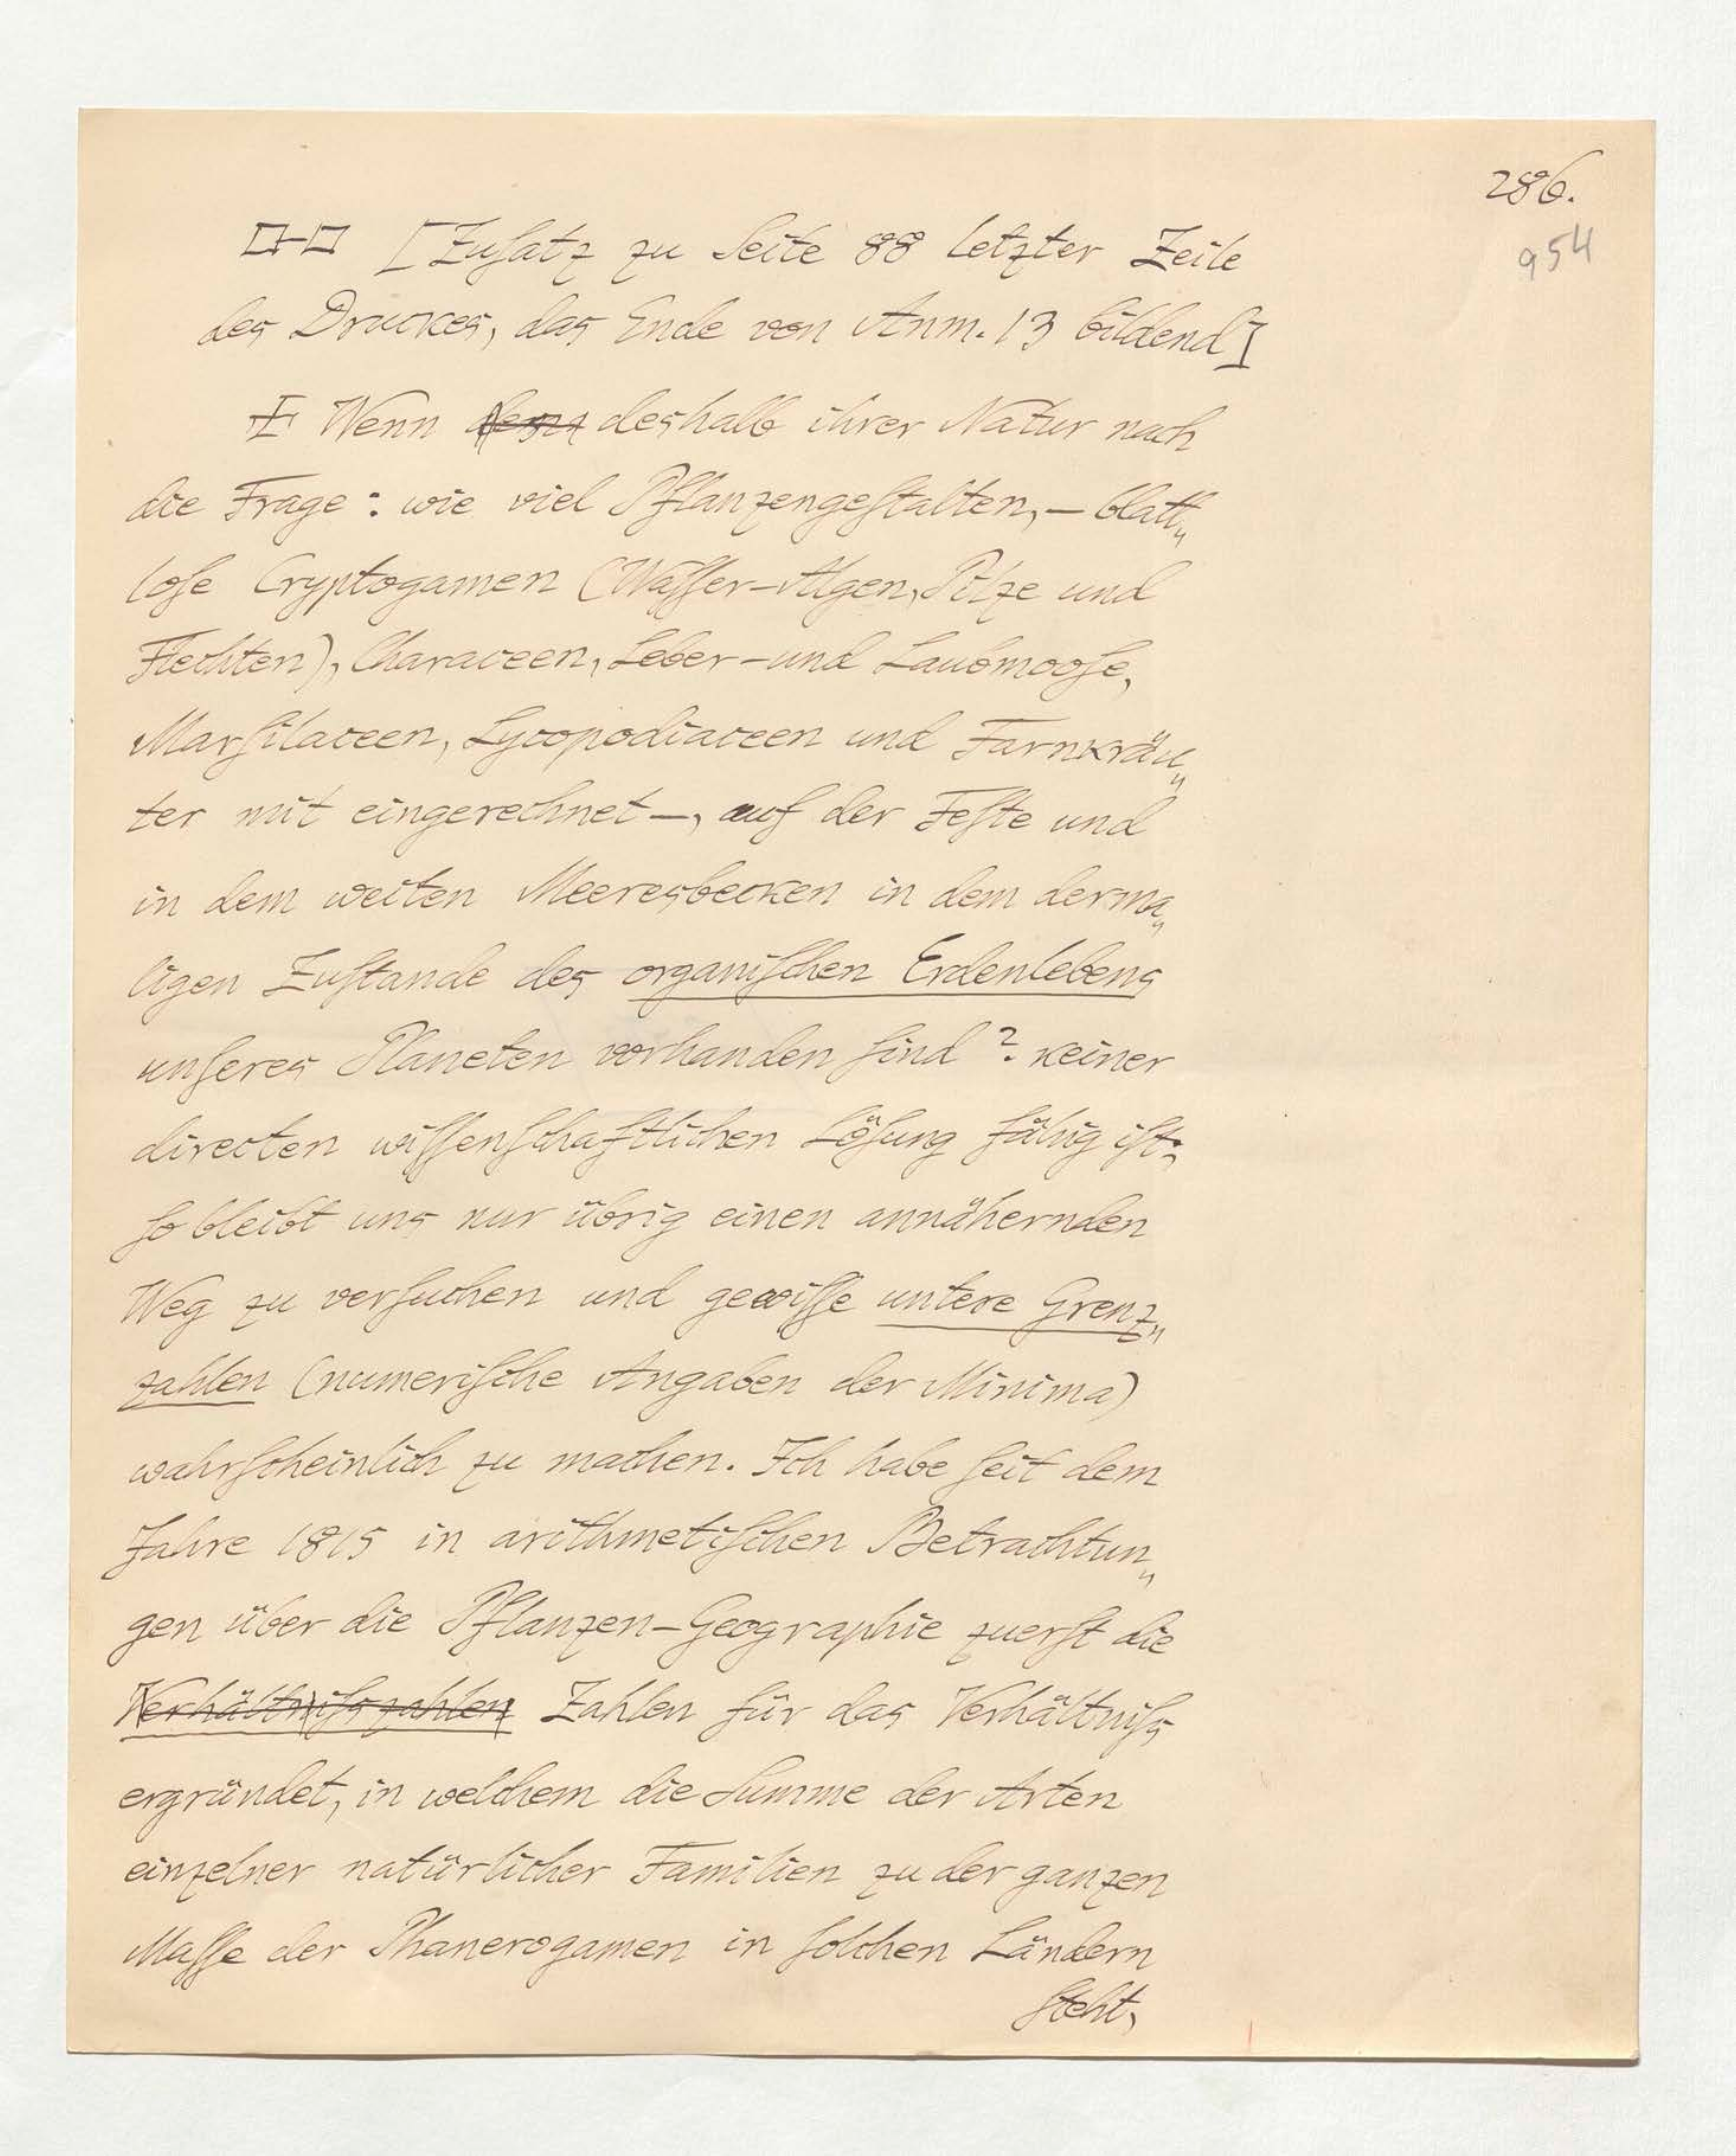 286.
954
[Zusatz zu Seite 88 letzter Zeile
des Druckes, das Ende von Anm. 13 bildend]
Wenn deshalb ihrer Natur nach
die Frage: wie viel Pflanzengestalten, — blatt„
lose Cryptogamen (Wasser-Algen, Pilze und
Flechten), Characeen, Leber- und Laubmoose,
Marsilaceen, Lycopodiaceen und Farnkräu„
ter mit eingerechnet —, auf der Feste und
in dem weiten Meeresbecken in dem derma„
ligen Zustande des organischen Erdenlebens
unseres Planeten vorhanden sind? keiner
directen wissenschaftlichen Lösung fähig ist;
so bleibt uns nur übrig einen annähernden
Weg zu versuchen und gewisse untere Grenz„
zahlen (numerische Angaben der Minima)
wahrscheinlich zu machen. Ich habe seit dem
Jahre 1815 in arithmetischen Betrachtun„
gen über die Pflanzen-Geographie zuerst die
Verhältnißzahlen Zahlen für das Verhältniß
ergründet, in welchem die Summe der Arten
einzelner natürlicher Familien zu der ganzen
Masse der Phanerogamen in solchen Ländern
steht,